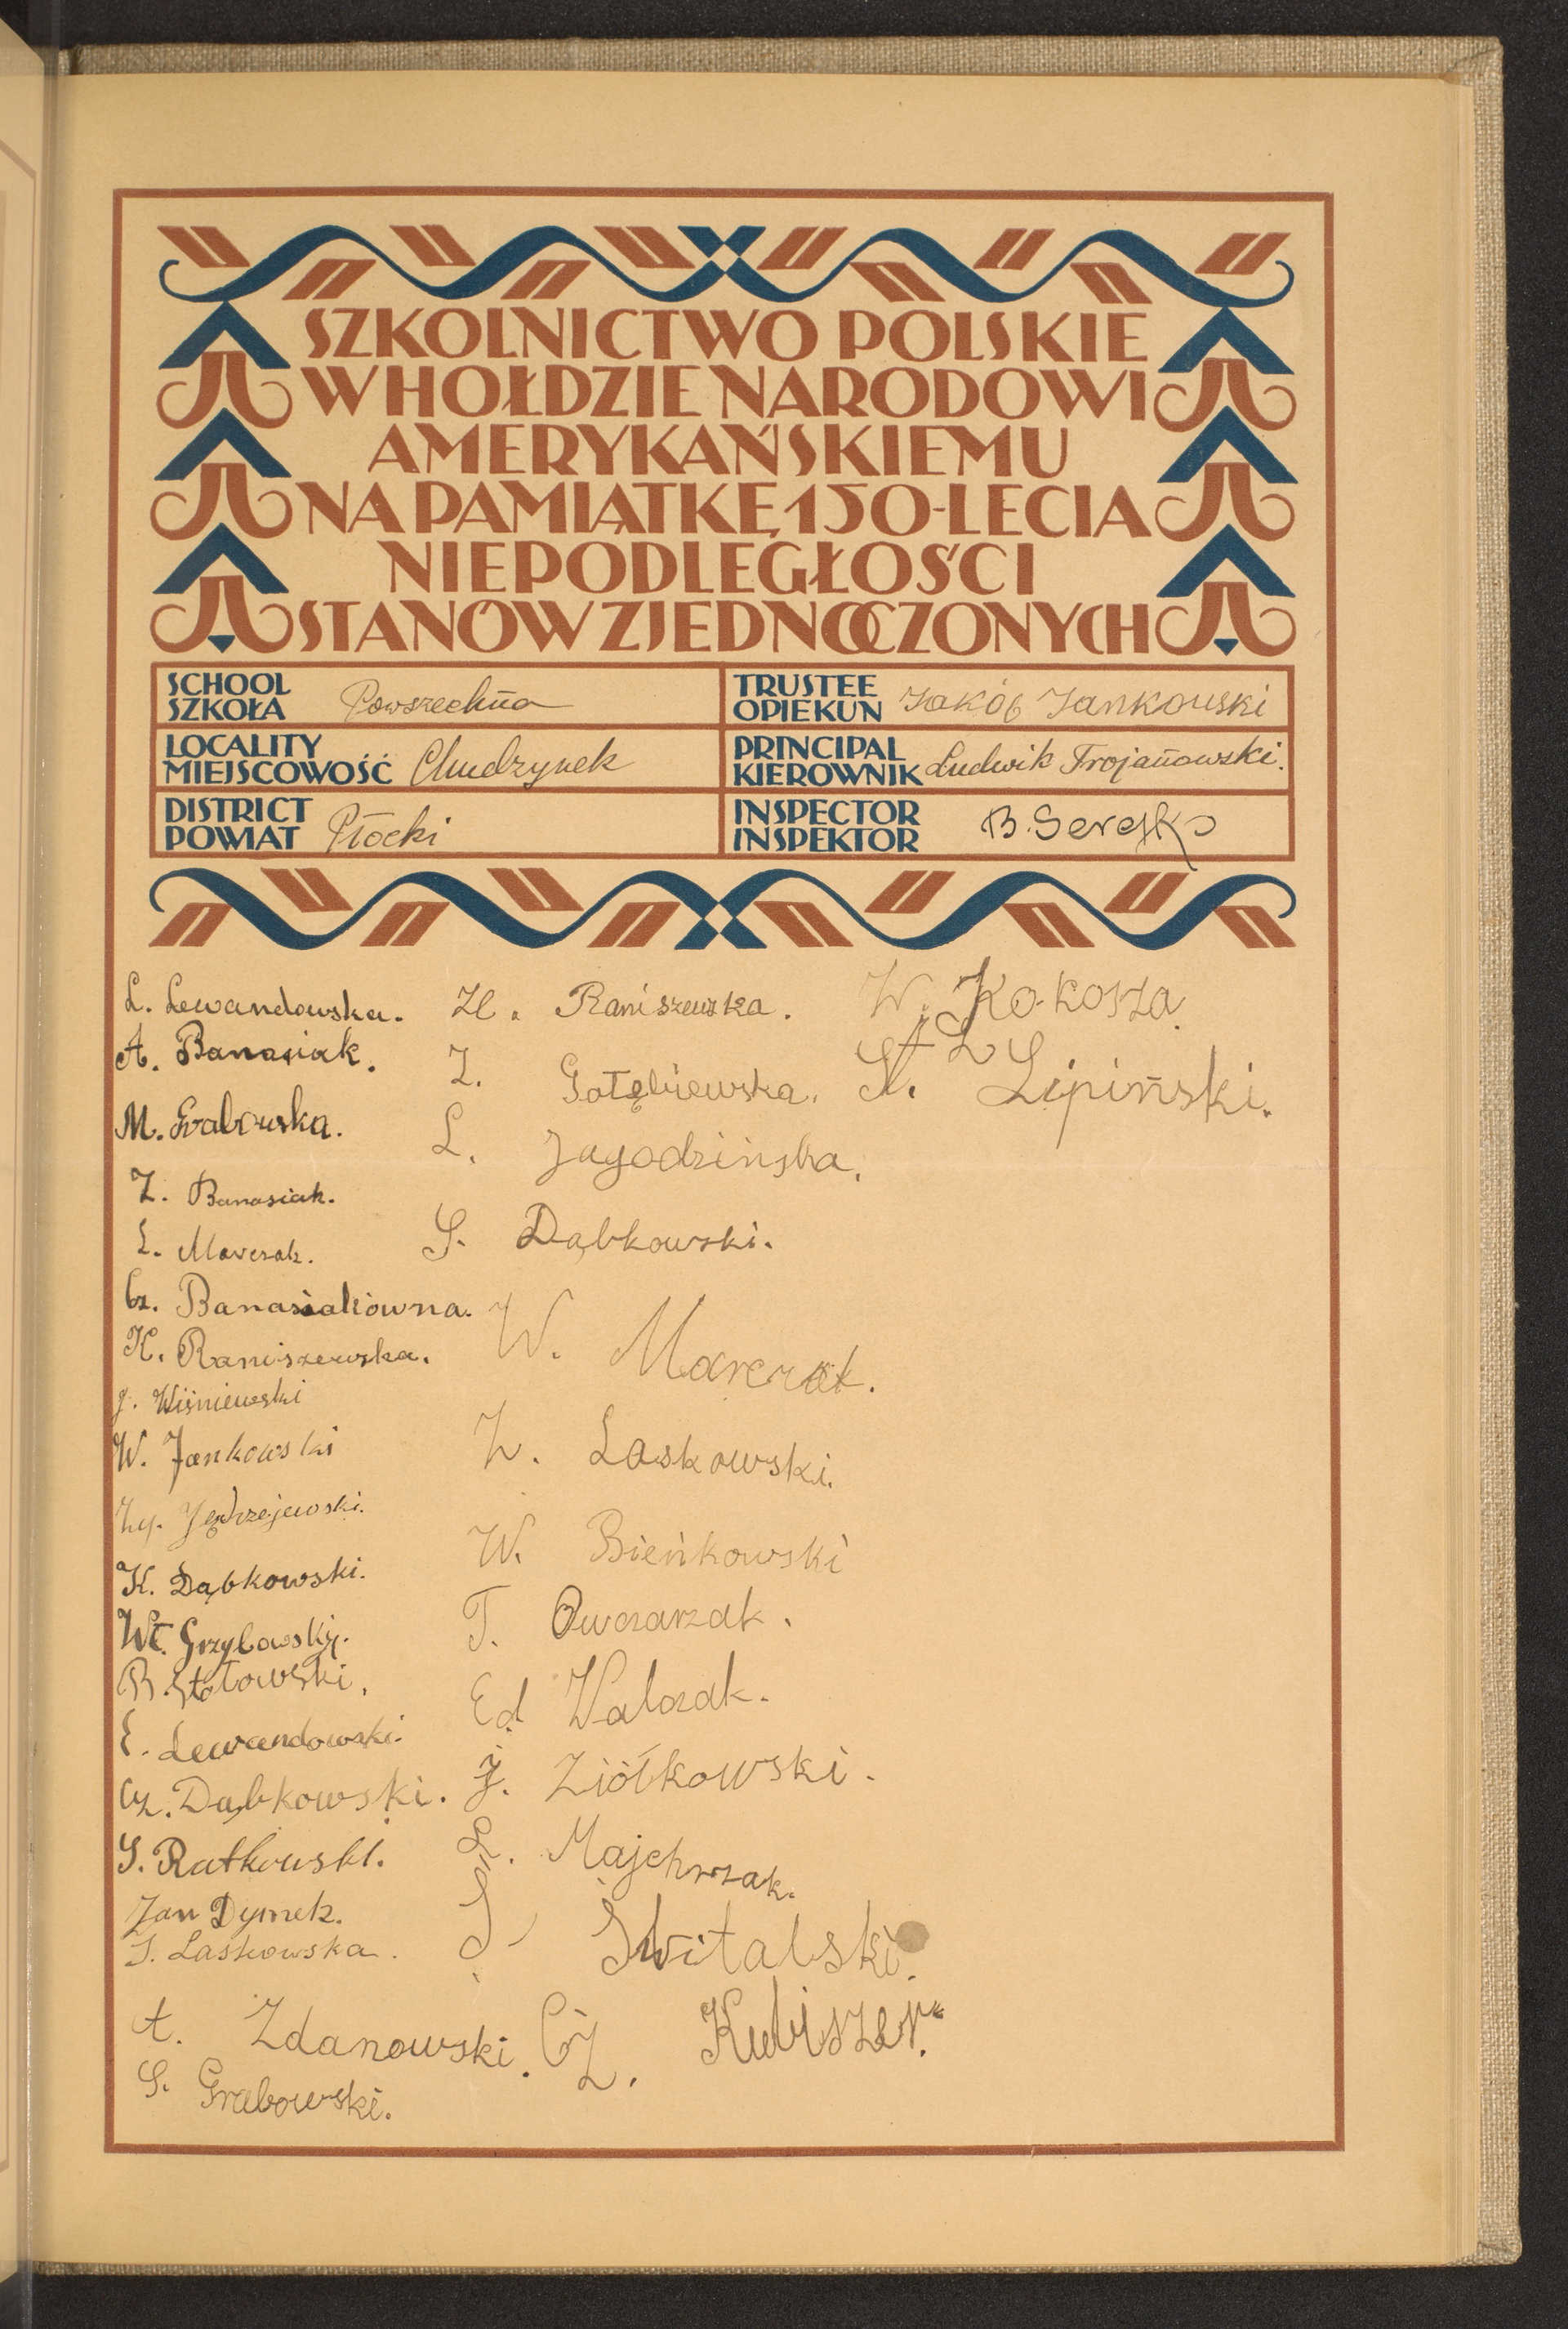 SZKOLNICTWO POLSKIE
W HOŁDZIE NARODOWI
AMERYKAŃSKIEMU
NA PAMIĄTKĘ 150-LECIA
NIEPODLEGŁOŚCI
STANÓW ZJEDNOCZONYCH
SCHOOL
SZKOŁA
Powszechna
TRUSTEE
OPIEKUN
Jakób Jankowski
LOCALITY
MIEJSCOWOŚĆ
Chudzynek
PRINCIPAL
KIEROWNIK
Ludwik Trojanowski.
DISTRICT
POWIAT
Płocki
INSPECTOR
INSPEKTOR
B. Serejko
L. Lewandowska.
A. Banasiak.
M. Grabowska.
Z. Banasiak.
L. Marczak.
Cz. Banasiakówna.
K. Raniszewska.
J. Wiśniewski
W. Jankowski
Zy. Jędrzejewski.
K. Dąbkowski.
Wł. Grzybowski.
B. Stołowski.
E. Lewandowski.
Cz. Dąbkowski.
S. Rutkowski.
Jan Dymek.
S. Laskowska.
A. Zdanowski.
S. Grabowski.
H. Raniszewska.
Z. Gołębiewska.
L. Jagodzińska.
S. Dąbkowski.
W. Marczak.
Z. Laskowski.
W. Bieńkowski
T. Owczarzak.
Ed Walczak.
J. Ziółkowski.
Majchrzak.
S. Świtalski.
Cz. Kubiszer.
W. Kokosza.
St. Lipiński.